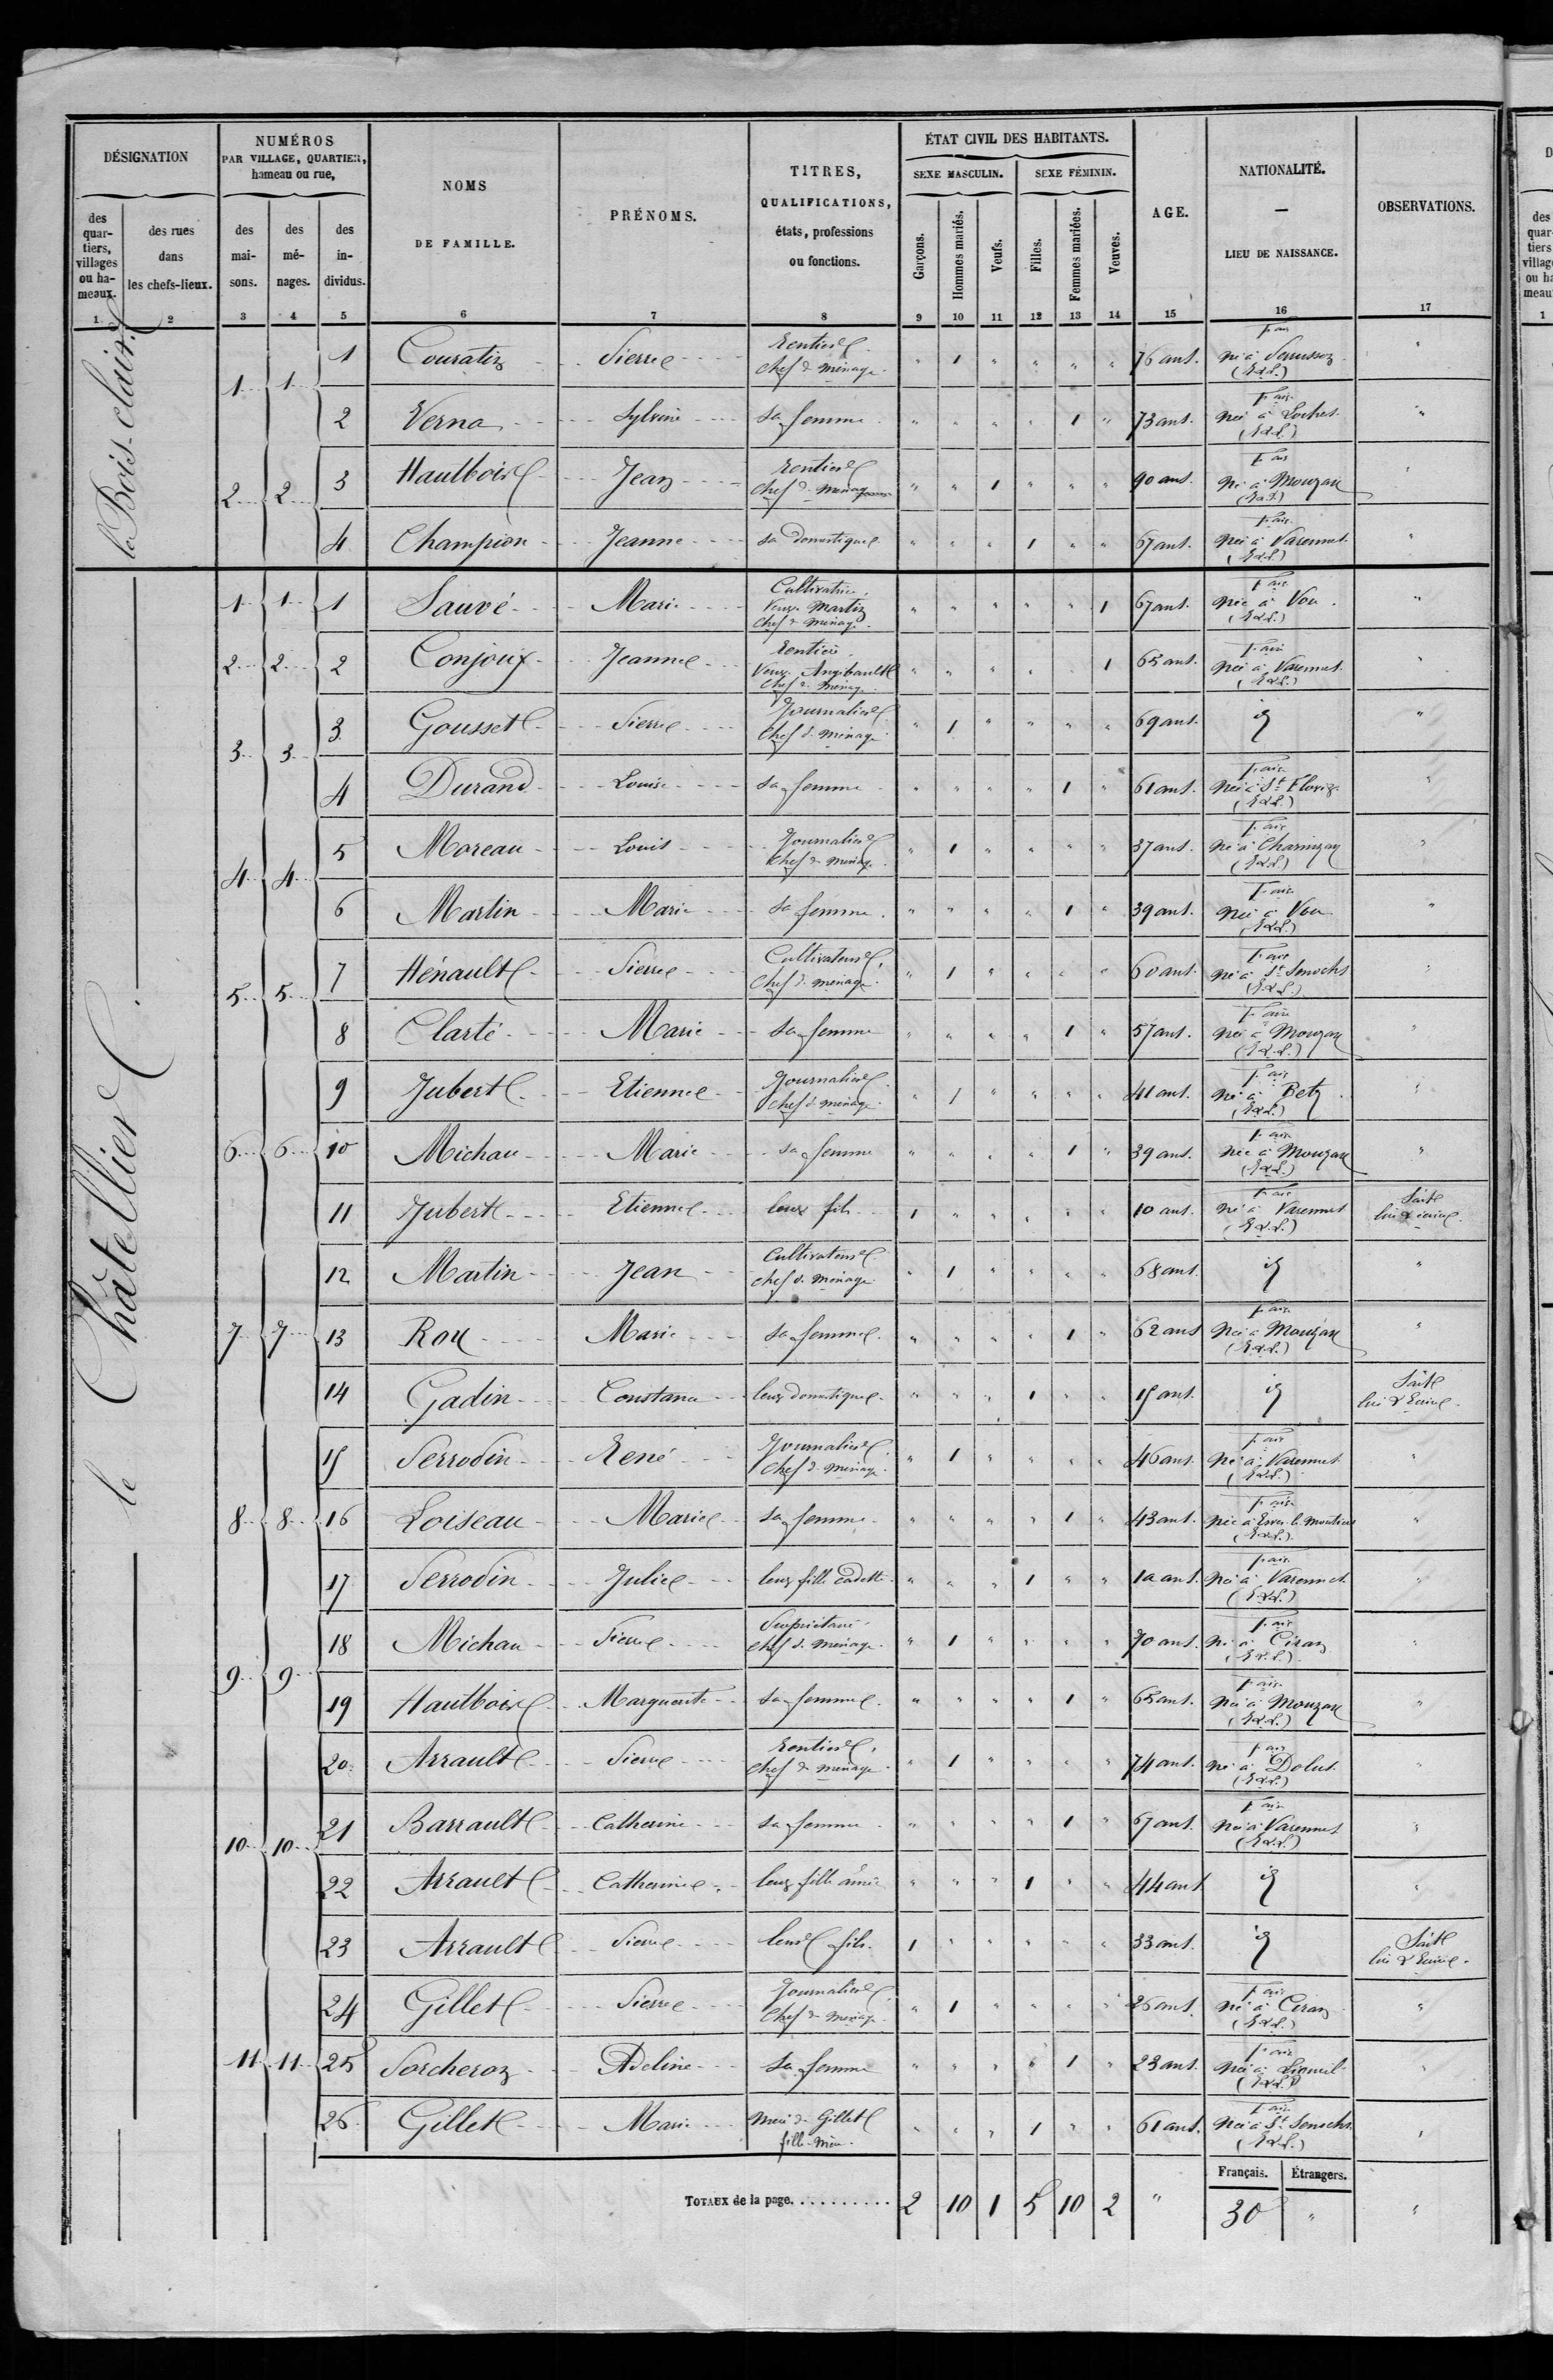 DÉSIGNATION
NUMÉROS
PAR VILLAGE, QUARTIER,
hameau ou rue,
NOMS
DE FAMILLE.
PRÉNOMS.
TITRES,
QUALIFICATIONS,
états, professions
ou fonctions.
ÉTAT CIVIL DES HABITANTS.
SEXE MASCULIN. SEXE FÉMININ.
AGE.
NATIONALITÉ.
—
LIEU DE NAISSANCE.
OBSERVATIONS.
des
quar-
tiers,
villages
ou ha-
meaux.
des rues
dans
les chefs-lieux.
des
mai-
sons.
des
mé-
nages.
des
in-
dividus.
Garçons.
Hommes mariés.
Veufs.
Filles.
Femmes mariées.
Veuves.
1 2 3 4 5 6 7 8 9 10 11 12 13 14 15 16 17
Bois-clair
1 1 1 Couratin Pierre Rentier chef de ménage 1 76 ans. né à Perrusson (I&L.)
2 Verna Sylvine sa femme 1 73 ans. née à Loches (I&L.)
2 2 3 Haultbois Jean Rentier chef de ménage 1 90 ans. né à Mouzay (I&L.)
4 Champion Jeanne sa domestique 1 67 ans. née à Varennes (I&L.)
le Châtellier
1 1 1 Sauvé Marie Cultivatrice, Veuve Martin chef de ménage 1 67 ans. née à Vou (I&L.)
2 2 2 Conjoux Jeanne Rentière Veuve Angibault chef de ménage 1 65 ans. née à Varennes (I&L.)
3 3 3 Gousset Pierre Journalier chef de ménage 1 69 ans. id
4 Durand Louise sa femme 1 61 ans. née à St Flovier (I&L.)
4 4 5 Moreau Louis Journalier chef de ménage 1 37 ans. né à Charnizay (I&L.)
6 Martin Marie sa femme 1 39 ans. née à Vou (I&L.)
5 5 7 Hénault Pierre Cultivateur, chef de ménage 1 60 ans. né à St Senoch (I&L.)
8 Clarté Marie sa femme 1 57 ans. née à Mouzay (I&L.)
6 6 9 Jubert Etienne Journalier chef de ménage 1 41 ans. né à Betz (I&L.)
10 Michau Marie sa femme 1 39 ans. née à Mouzay (I&L.)
11 Jubert Etienne leur fils 1 10 ans. né à Varennes (I&L.) Sait lire & écrire.
7 7 12 Martin Jean Cultivateur chef de ménage 1 68 ans. id
13 Roy Marie sa femme 1 62 ans née à Mouzay (I&L.)
14 Gadin Constance leur domestique 1 15 ans. id Sait lire & Ecrire.
8 8 15 Perrodin René Journalier chef de ménage 1 46 ans. né à Varennes (I&L.)
16 Loiseau Marie sa femme 1 43 ans. née à (I&L.)
17 Perrodin Julie leur fille cadette 1 née à Varennes (I&L.)
9 9 18 Michau Pierre Propriétaire chef de ménage 1 70 ans. né à Ciran (I&L.)
19 Hautbois Marguerite sa femme 1 65 ans. née à Mouzay (I&L.)
10 10 20 Arrault Pierre Rentier, chef de ménage 1 74 ans. né à Dolus (I&L.)
21 Barrault Catherine sa femme 1 67 ans. née à Varennes (I&L.)
22 Arrault Catherine leur fille aînée 1 44 ans id
23 Arrault Pierre leur fils. 1 33 ans. id Sait lire & Ecrire.
11 11 24 Gillet Pierre Journalier chef de ménage 1 26 ans. né à Ciran (I&L.)
25 Porcheron Adeline sa femme 1 23 ans. née à Ligueil (I&L.)
26 Gillet Marie Mère de Gillet fille-mère 1 61 ans. née à St Senoch (I&L.)
Français. Étrangers.
TOTAUX de la page. 2 10 1 5 10 2 " 30 " "